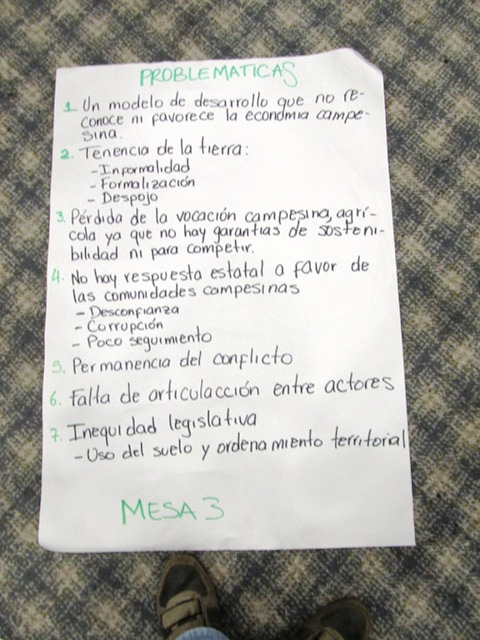 PROBLEMATICAS
1. Un modelo de desarrollo que no re-
conoce ni favorece la economia campe-
sina.
2. Tenencia de la tierra:
- Informalidad
- Formalización
- Despojo
3. Pérdida de la vocación campesina, agrí-
cola ya que no hay garantias de sosteni-
bilidad ni para competir.
4. No hay respuesta estatal a favor de
las comunidades campesinas
- Desconfianza
- Corrupción
- Poco seguimiento
5. Permanencia del conflicto
6. Falta de articulacción entre actores
7. Inequidad legislativa
- Uso del suelo y ordenamiento territorial
MESA 3